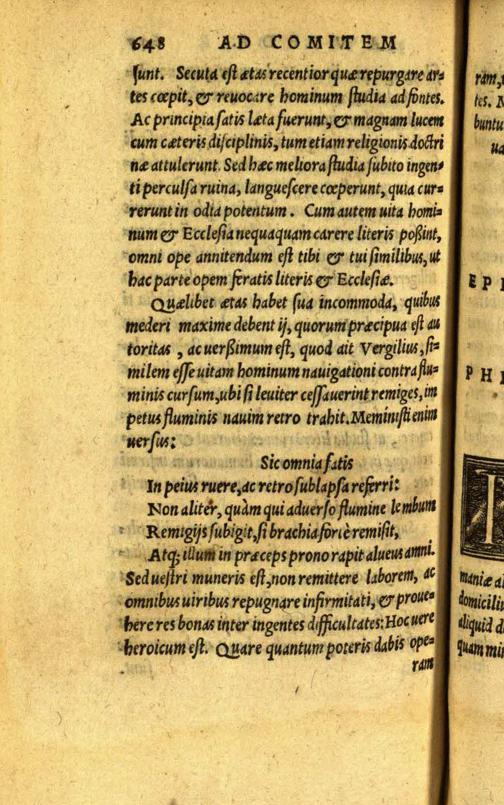 648 AD COMITEM
sunt. Secuta est ætas recentior quæ repurgare ar=
tes cœpit, & reuocare hominum studia ad fontes.
Ac principia satis læta fuerunt, & magnam lucem
cum cæteris disciplinis, tum etiam religionis doctri
næ attulerunt. Sed hæc meliora studia subito ingen=
ti perculsa ruina, languescere cœperunt, quia cur=
rerunt in odia potentum. Cum autem uita homi=
num & Ecclesia nequaquam carere literis poßint,
omni ope annitendum est tibi & tui similibus, ut
hac parte opem feratis literis & Ecclesiæ.
Quælibet ætas habet sua incommoda, quibus
mederi maxime debent ij, quorum præcipua est au
toritas, ac uerßimum est, quod ait Vergilius, si=
milem esse uitam hominum nauigationi contra flu=
minis cursum, ubi si leuiter cessauerint remiges, im
petus fluminis nauim retro trahit. Meministi enim
uersus:
Sic omnia fatis
In peius ruere, ac retro sublapsa referri:
Non aliter, quàm qui aduerso flumine lembum
Remigijs subigit, si brachia fortè remisit,
Atq; illum in præceps prono rapit alueus amni.
Sed uestri muneris est, non remittere laborem, ac
omnibus uiribus repugnare infirmitati, & proue=
here res bonas inter ingentes difficultates: Hoc uere
heroicum est. Quare quantum poteris dabis ope=
ram
ram,
tes.
buntu
ua
EPI
PHI
maniæ
domicili
aliquid d
quam min